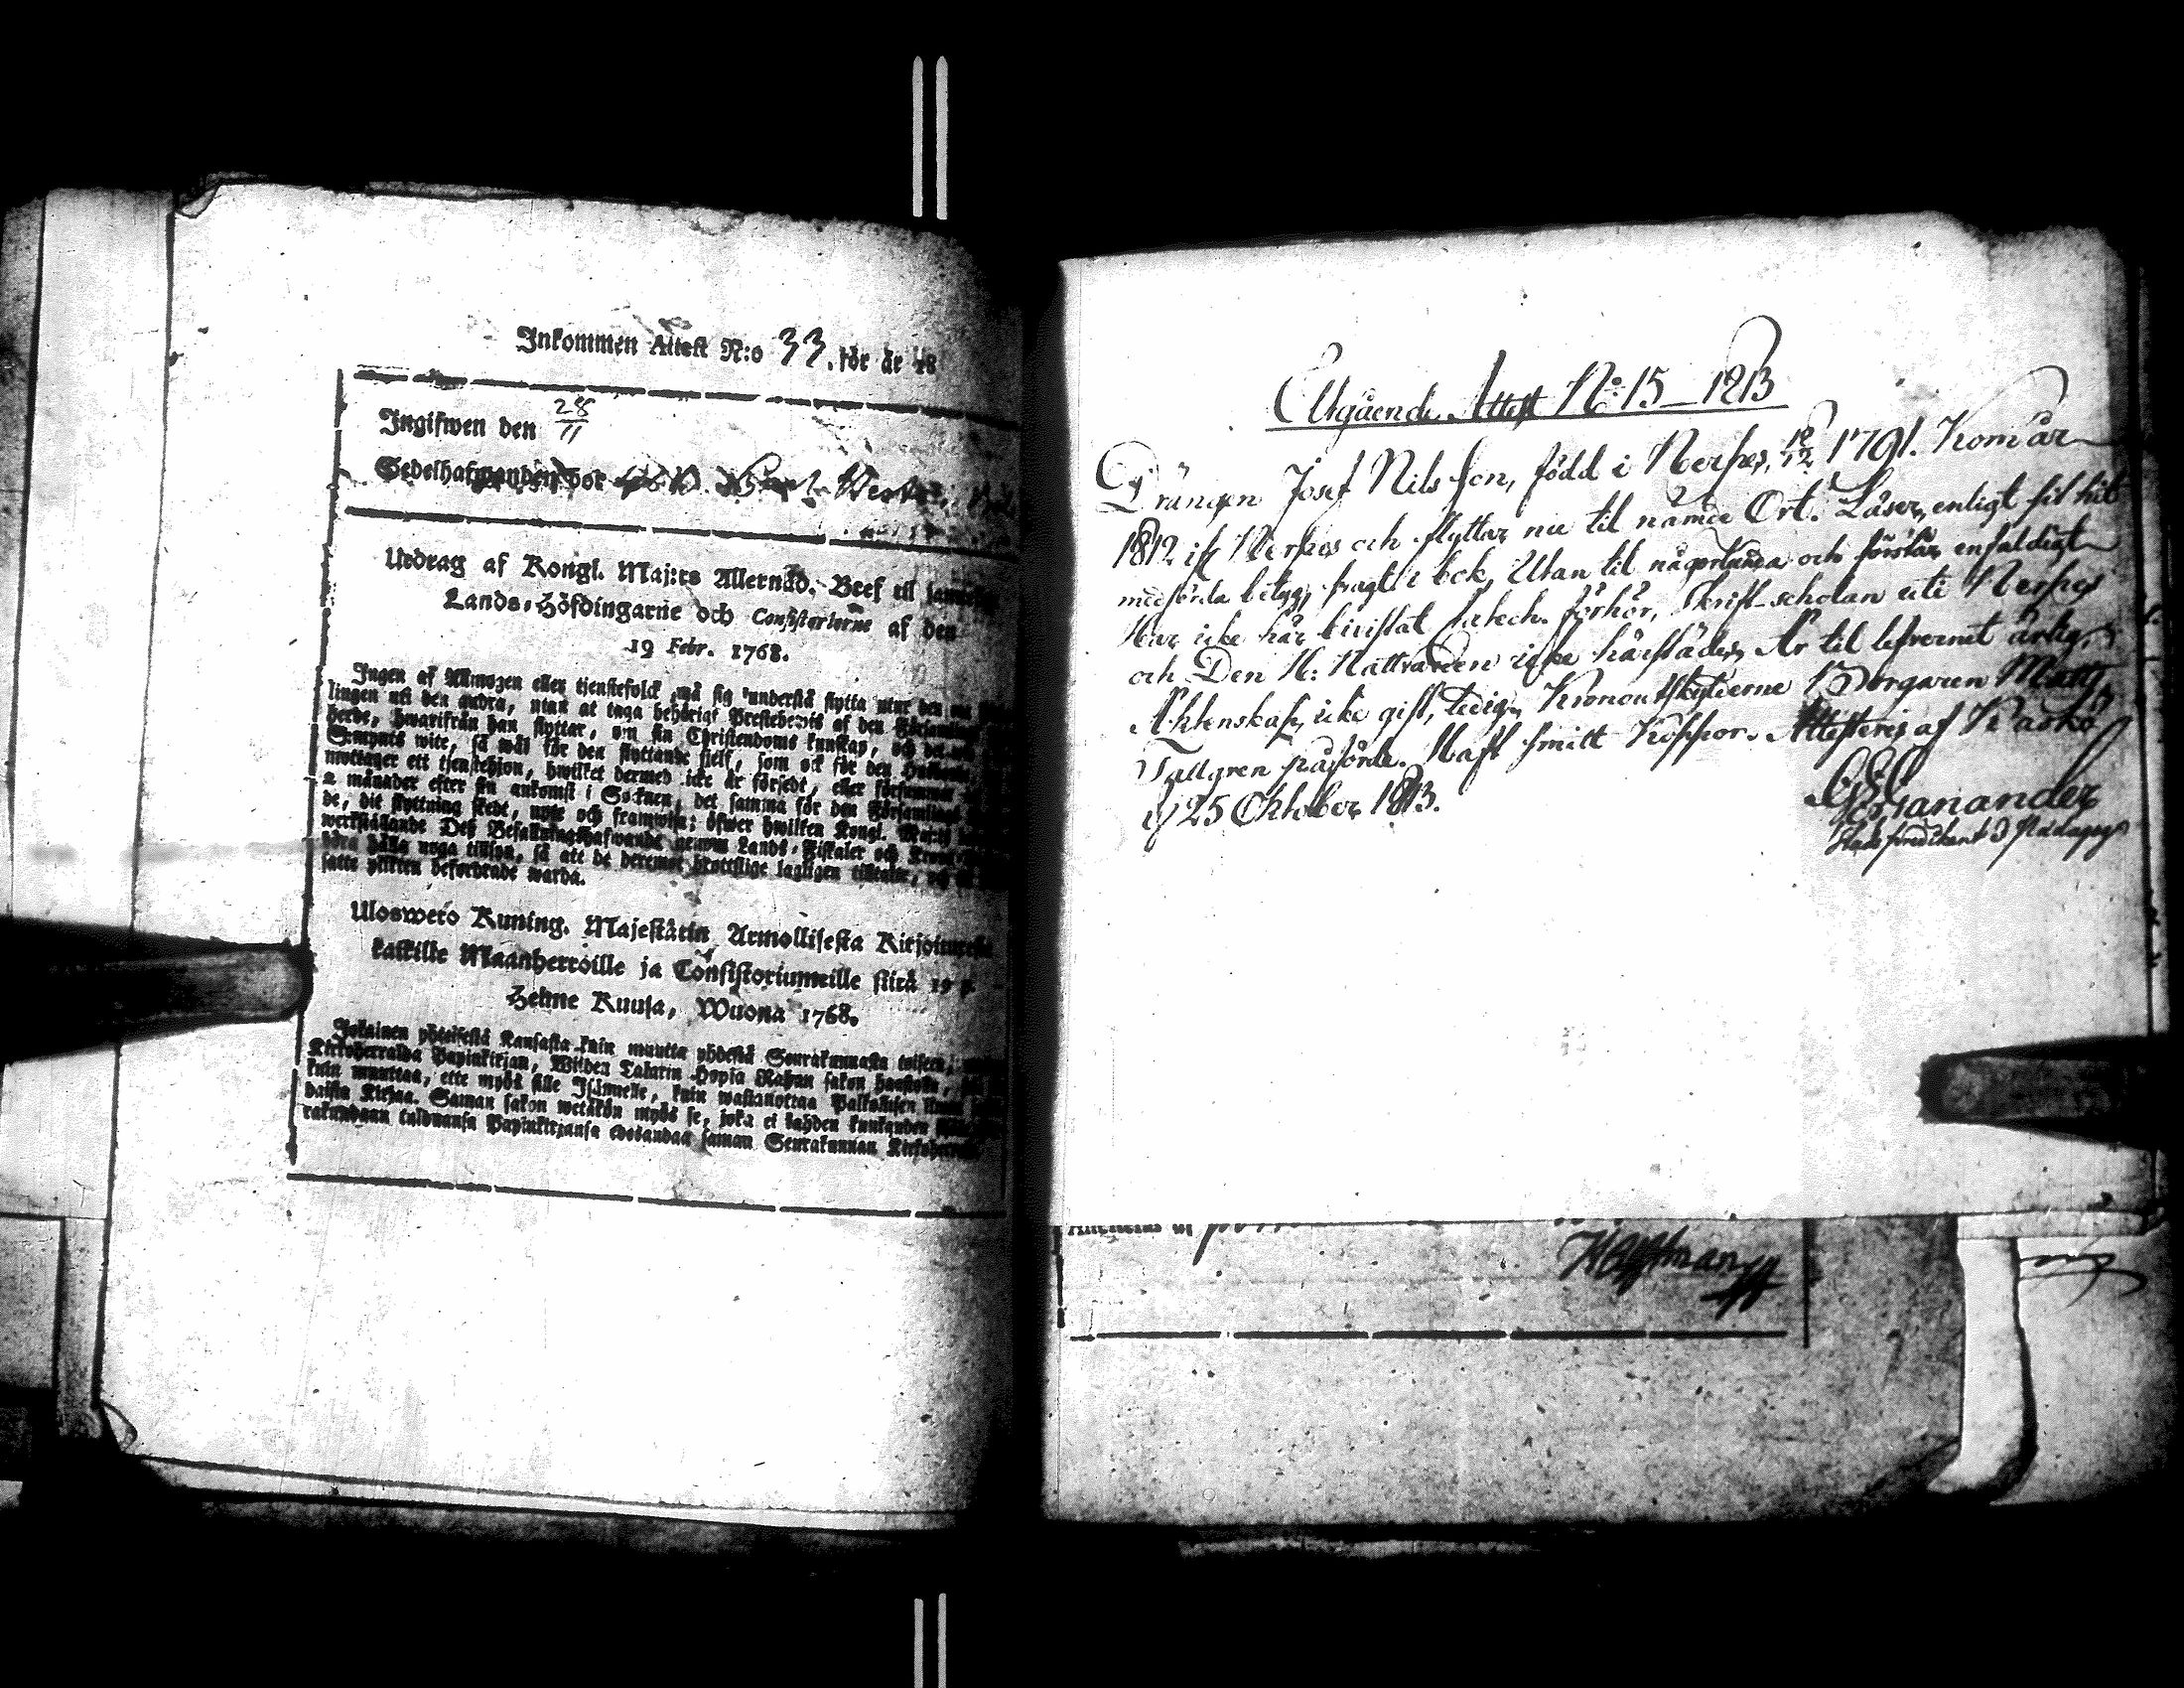 Inkommen Attest N:o 33. för år 18
Ingifwen den 28/11
Sedelhafwanden bor
Utdrag af Kongl. Maj:ts Allernåd. Bref til samtelige
Lands-Höfdingarne och Consistorierne af den
19 Febr. 1768.
Ingen af Allmogen eller tjenstefolck må sig understå flytta utur den ena
lingen uti den andra, utan at taga behörigt Prestebewis af den Församlings
herde, hwarifrån han flyttar, om sin Christendoms kunskap, och
wite, så wäl för den flyttande sielf, som ock för den
mottager ett tjenstehjon, hwilket dermed icke är försedt, eller försummar
2 månader efter sin ankomst i Socknen, det samma för den Församlings
de, dit flyttning skedt, upte och framwisa; öfwer hwilken Kongl. Maj:ts
werkställande Des Befallningshafwande genom Lands-Fiskaler och
böra hålla noga tilsyn, så att de deremot brottslige lagligen tilltalas, och
satte plikten befordrade warda.
Ulosweto Kuning. Majestätin Armollisesta Kirjoituxesta
kaikille Maanherroille ja Consistoriumeille siitä 19 p.
Helme Kuusa, Wuona 1768.
Jokainen yhteisestä Kansasta kuin muutta yhdestä Seurakunnasta toiseen,
Kirkkoherralda Papinkirjan, Wijden Talarin Hopia Rahan sakon haastolla,
kuin muuttaa, ette myös sille Isännelle, kuin wastanottaa Palkollisen ilman
daista Kirjaa. Saman sakon wetäkön myös se, joka ei kahden kuukauden
rakundaan tulduansa Papinkirjansa edesandaa saman Seurakunnan Kirkoherralle
Utgående Attest N:o 15 – 1813
Drängen Josef Nilsson, född i Nerpes, 18/12 1791. Kom år
1812 ifr. Nerpes och flyttar nu til nämde Ort. Läser, enligt sit hit
medförda betyg, svagt i bok, Utan til någorlunda och förstår enfaldigt
Har icke här bivistat Catech. förhör, Skrift-scholan uti Nerpes
och Den H: Nattvarden icke härstädes, Är til lefvernet ärlig,
Äktenskap, icke gift, ledig, Kronoutskylderne Borgaren Matts
Tallgren påförde. Haft smitt Koppor. Attesteras af Kaskö
d 25 Oktober 1813.
Ganander
Stads predikant & Pædagog
Attesteras af